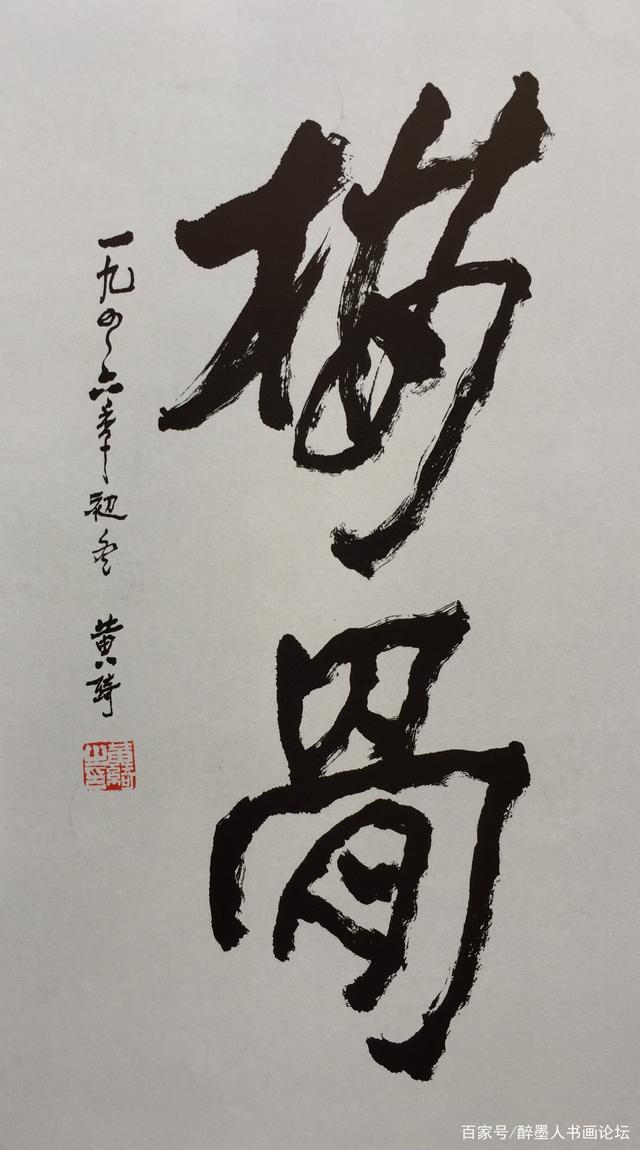 梅骨
一九四六年初冬 黄绮
黄綺之印
百家号/醉墨人书画论坛